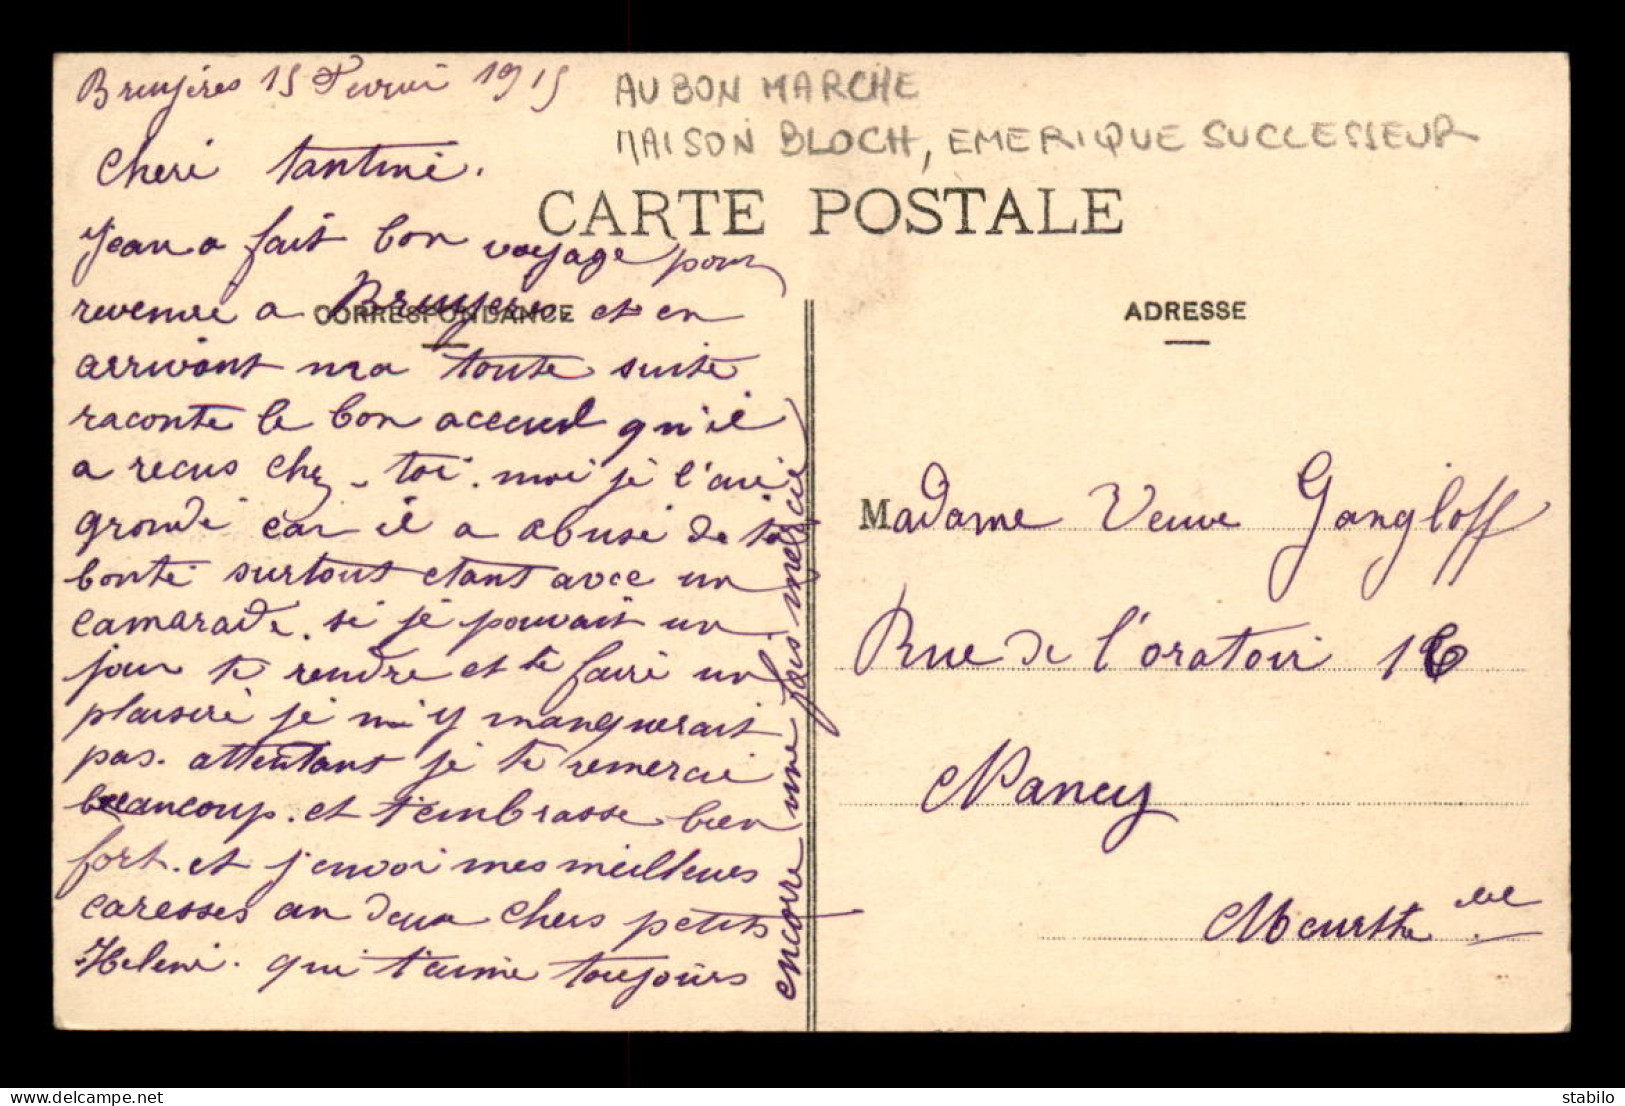 Bruyères 15 Fevrié 1915
AU BON MARCHE
MAISON BLOCH, EMERIQUE SUCCESSEUR
CARTE POSTALE
CORRESPONDANCE
Cheri tantine.
Jean a fait bon voyage pour
revenire a Bruyeres. et en
arrivant ma toute suite
raconte le bon acceuil qu'il
a recus chez toi. moi je l'ai
grondé car il a abusé de ta
bonté surtout etant avec un
camarade. si je pouvait un
jour te rendre et te faire un
plaisire je m'y manquerait
pas. attentant je te remercie
beaucoup. et t'embrasse bien
fort. et j'envoi mes meilleures
caresses au deux chers petits
Helene. qui t'aime toujours
encore une fois mercie
ADRESSE
Madame Veuve Gangloff
Rue de l'oratoir 16
Nancy
Meurthe elle
delcampe.net
stabilo